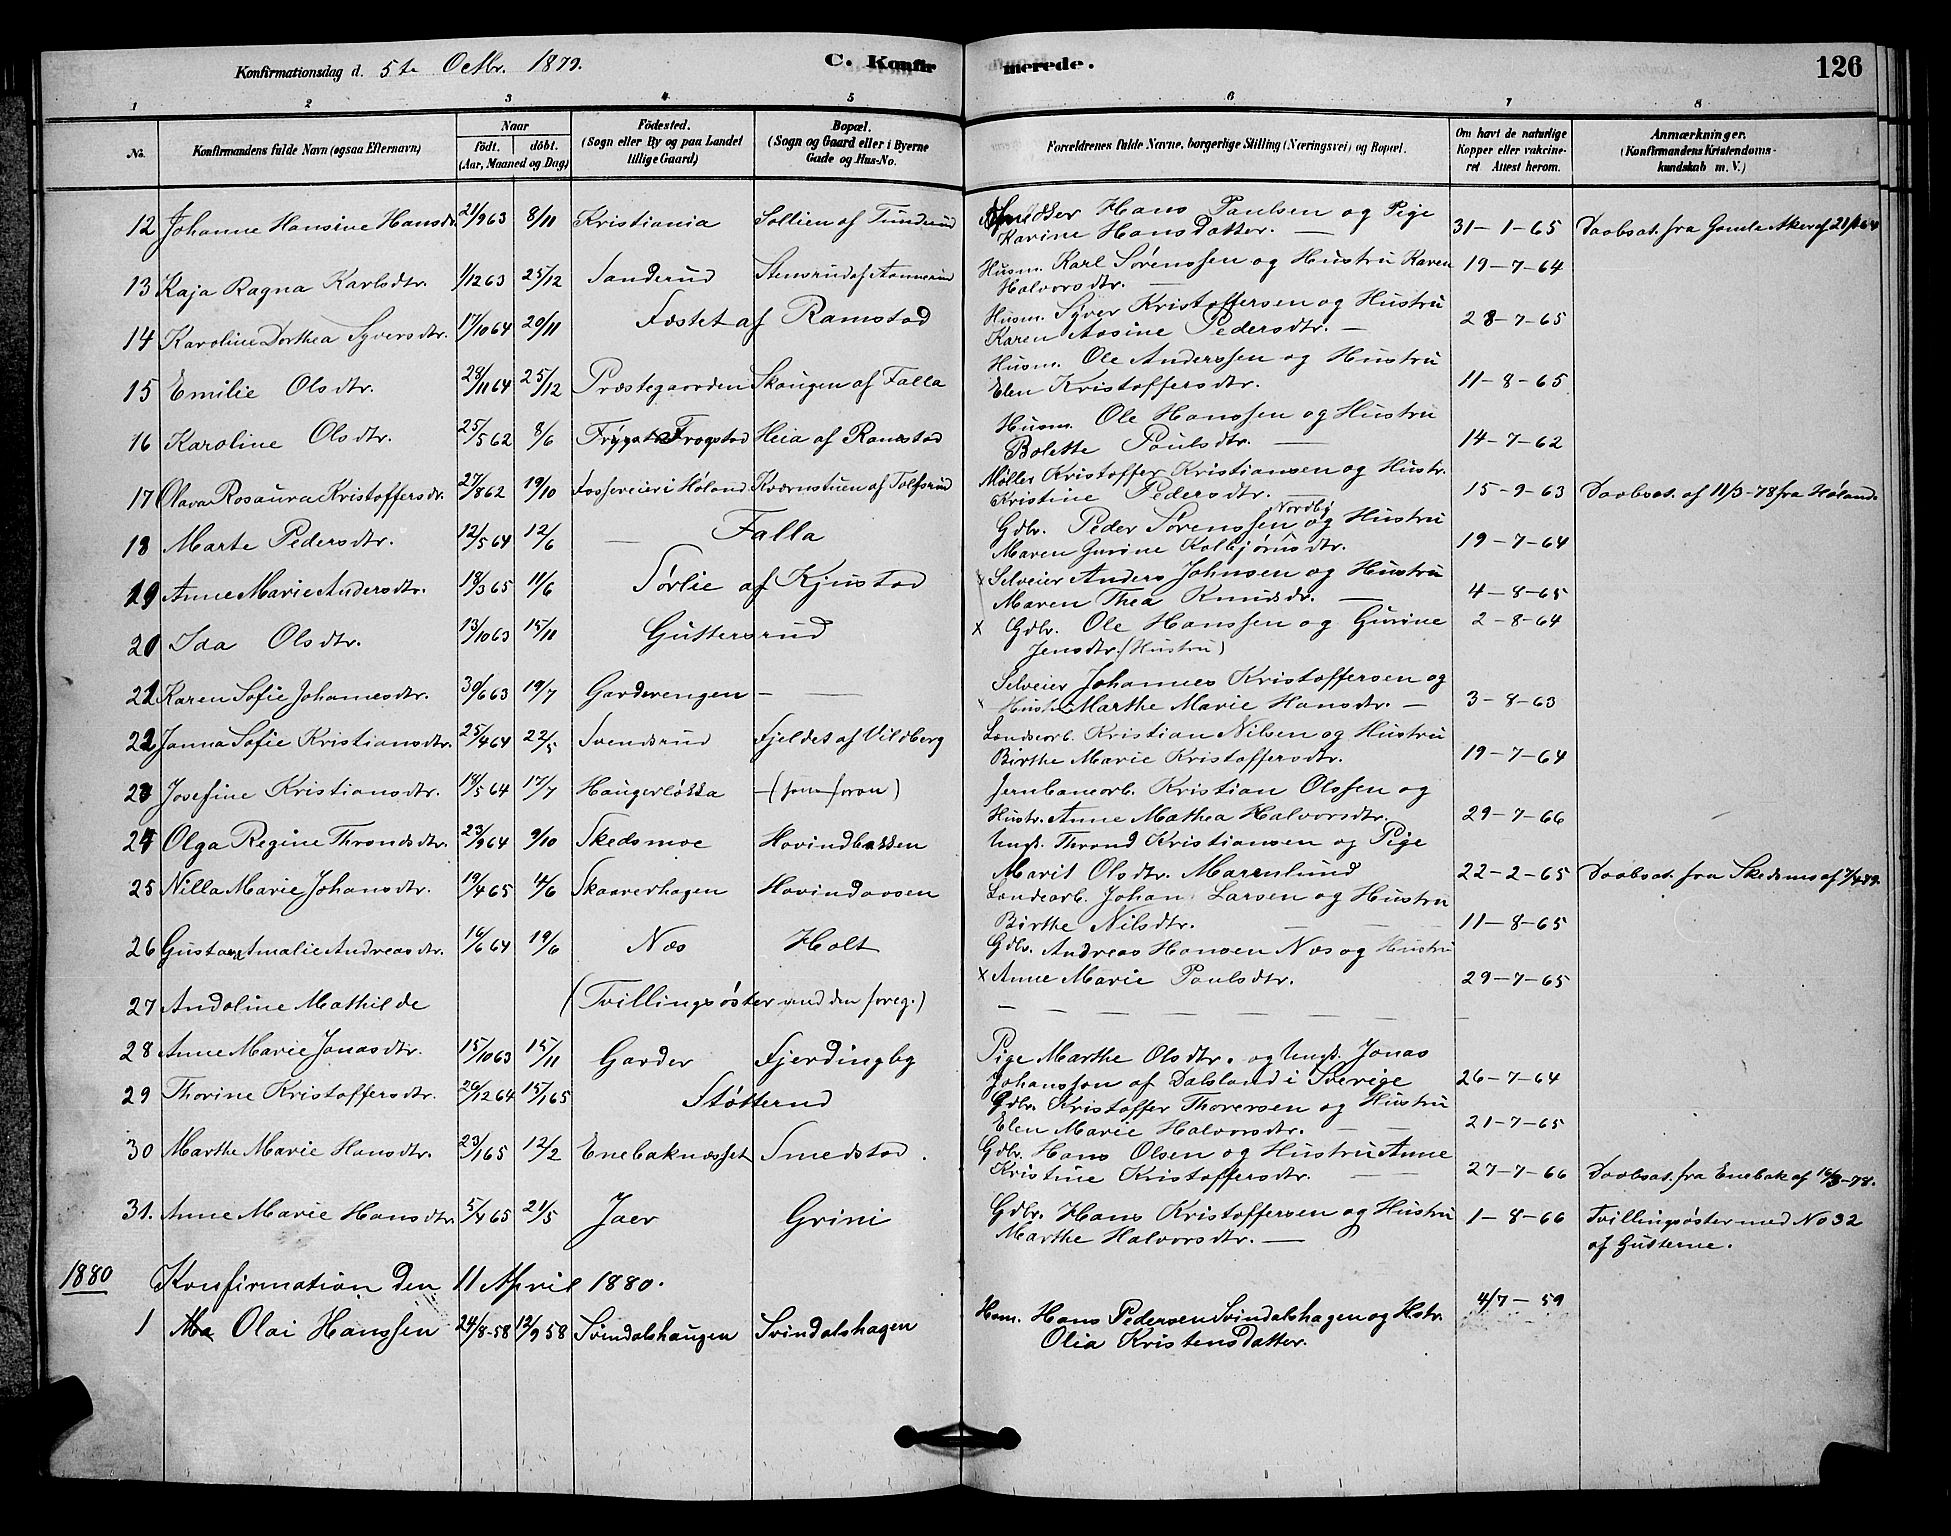 Konfirmationsdag d. 5te Octbr. 1879.
C. Konfirmerede.
126
1 2 3 4 5 6 7 8
No.
Konfirmandens fulde Navn (ogsaa Efternavn)
Naar
født. døbt.
(Aar, Maaned og Dag)
Fødested.
(Sogn eller By og paa Landet tillige Gaard)
Bopæl.
(Sogn og Gaard eller i Byerne Gade og Hus-No.
Forældrenes fulde Navne, borgerlige Stilling (Næringsvei) og Bopæl.
Om havt de naturlige Kopper eller vakcineret Attest herom.
Anmærkninger.
(Konfirmandens Kristendomskundskab m. V.)
12 Johanne Hansine Hansdr. 21/9 63 8/11 Kristiania Sollien af Tunderud Smedker Hans Paulsen og Pige
Karine Hansdatter. — 31-1-65 Daabsat. fra Gamle Aker af
13 Kaja Ragna Karlsdtr. 1/12 63 25/12 Sanderud Stensrud af Husm. Karl Sørenssen og Hustru Karen
Halvorsdtr. — 19-7-64
14 Karoline Dorthea Syversdtr. 17/10 64 20/11 Fæstet af Ramstad Husm. Syver Kristoffersen og Hustru
Karen Aasine Pedersdtr. — 28-7-65
15 Emilie Olsdtr. 28/11 64 25/12 Præstegaarden Skaugen af Falla Husm. Ole Anderssen og Hustru
Elen Kristoffersdtr. 11-8-65
16 Karoline Olsdtr. 25/5 62 8/6 Frogstad Heia af Ramstad Husm. Ole Hanssen og Hustru
Bolette Paulsdtr. — 14-7-62
17 Olava Rosaura Kristoffersdr. 27/8 62 19/10 Fosserveier i Høland Kværnstuen af Tolfsrud Møller Kristoffer Kristiansen og Hustr.
Kristine Pedersdtr. — 15-9-63 Daabsat. af 11/3-78 fra Høland.
18 Marte Pedersdtr. 12/5 64 12/6 — Falla Gdbr. Peder Sørenssen Nordby og Hustru
Maren Gurine Kolbjørnsdtr. 19-7-64
19 Anne Marie Andersdtr. 18/3 65 11/6 Sørlie af Kjustad x Selveier Anders Johnsen og Hustru
Maren Thea Knudsdr. — 4-8-65
20 Ida Olsdtr. 13/10 63 15/11 Guttersrud x Gdbr. Ole Hanssen og Gurine
Jensdtr. (Hustru) 2-8-64
21 Karen Sofie Johannesdtr. 30/6 63 19/7 Garderengen — — Selveier Johannes Kristoffersen og
x Hustru Marthe Marie Hansdtr. — 3-8-63
22 Janna Sofie Kristiansdtr. 25/4 64 22/5 Svendsrud Fjeldet af Vildberg Landearb. Kristian Nilsen og Hustru
Birthe Marie Kristoffersdtr. 19-7-64
23 Josefine Kristiansdtr. 18/5 64 17/7 Haugerløkka — (som foran) Jernbanearb. Kristian Olssen og
Hustr. Anne Mathea Halvorsdtr. 29-7-66
24 Olga Regine Throndsdtr. 23/9 64 9/10 Skedsmoe Hovindbakken Ungk. Thrond Kristiansen og Pige
Marit Olsdtr. Marenlund 22-2-65 Daabsat. fra Skedsmo af
25 Nilla Marie Johansdtr. 19/4 65 4/6 Skaarerhagen Hovindaasen Landearb. Johan Larsen og Hustru
Birthe Nilsdtr. — — — 11-8-65
26 Gustava Amalie Andreasdtr. 16/6 64 19/6 Næs Holt Gdbr. Andreas Hansen Næs og Hustru
x Anne Marie Paulsdtr. 29-7-65
27 Andoline Mathilde (Tvillingsøster med den foreg.) — — — — — — —
28 Anne Marie Jonasdtr. 15/10 63 15/11 Garder Fjerdingby Pige Marthe Olsdtr. og Ungk. Jonas
Johansson af Dalsland i Sverige 26-7-64
29 Thorine Kristoffersdtr. 26/12 64 15/1 65 Støtterud Gdbr. Kristoffer Thoresen og Hustru
Elen Marie Halvorsdtr. — — 21-7-65
30 Marthe Marie Hansdtr. 23/1 65 12/2 Enebaknæsset Smedstad. Gdbr. Hans Olsen og Hustru Anne
Kristine Kristoffersdtr. — — 27-7-66 Daabsat. fra Enebak af 16/3-78.
31. Anne Marie Hansdtr 5/4 65 21/5 Jaer Grini Gdbr. Hans Kristoffersen og Hustru
Marthe Halvorsdtr. — 1-8-66 Tvillingsøster med No 32
af Gutterne.
1880 Konfirmation den 11 April 1880.
1 Olai Hanssen 24/8-58 12/9 58 Svindalshaugen Svindalshagen Hsm. Hans Pedersen Svindalshagen og Hstr.
Olia Kristensdatter. 4/7-59